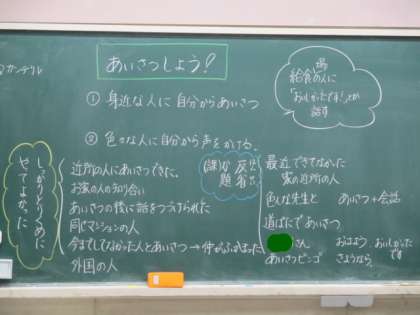 あいさつしよう!
① 身近な人に自分からあいさつ
② 色々な人に自分から声をかける。
給食の人に
「おいしかったです!」とか
話す
しっかりとりくめに
やてよかった
近所の人にあいさつできた。
お家の人の知り合い
あいさつの後に話をつづけられた
同じマンションの人
今までしてなかった人とあいさつ→仲がふかまった
外国の人
反省
(課題)
最近できてなかった
家の近所の人
色んな先生と あいさつ+会話
道ばたであいさつ
さん おはよう おいしかった
です
あいさつビンゴ さようなら